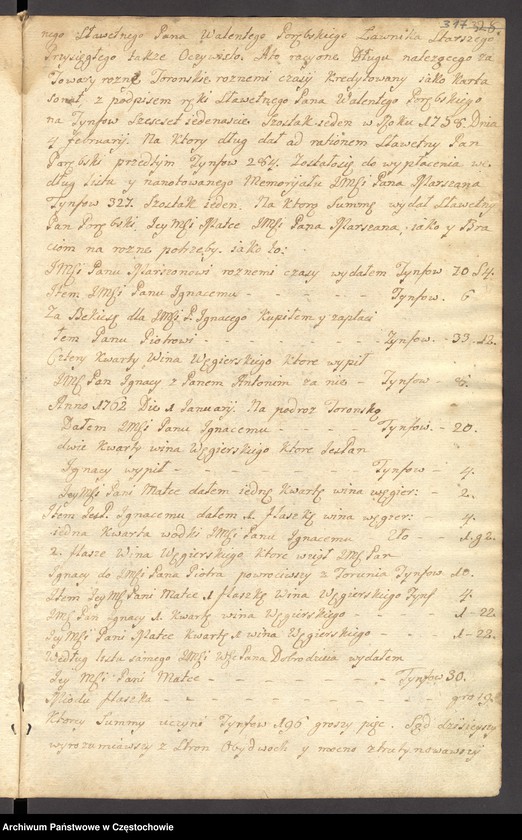 nego Sławetnego Pana Walentego Porębskiego Ławnika Starszego
Przysięgłego także Oczywisto. A to racyone Długu nalezącego za
Towary rozne Toronskie roznemi czasy kredytowany iako karta
sonat, z podpisem ręki Sławetnego Pana Walentego Porębskiego
na Tynfow Szescset iedenascie Szostak ieden w Roku 1758. Dnia
februarij. Na ktory dług dał ad rationem Sławetny Pan
Porębski przedtym Tynfow 284. Zostałosię do wypłacenia we
dług listu y nanotowanego Memorjału JMSci Pana Marszana
Tynfow 327. Szostak ieden. Na ktorą Summę wydał Sławetny
Pan Porębski. Jey MSci Matce JMSci Pana Marszana, iako y Bra
ciom na rozne potrzeby. iako to:
JMSci Panu Marszonowi roznemi czasy wydałem Tynfow 70
Item JMSci Panu Ignacemu - - - - - Tynfow. 6
Za Bekieszę dla JMSci P. Ignacego kupiłem y zapłaci
łem Panu Piotrowi - - - - - Tynfow. - 33. 12.
Cztery kwarty Wina Węgierskiego ktore wypił
JMSci Pan Ignacy z Panem Antonim za nie - Tynfow - 8.
Anno 1762 Die 1 Januarij. Na podroz Toronską
Dałem JMSci Panu Ignacemu - - - - Tynfow. - 20.
dwie kwarty wina Węgierskiego ktore Jes Pan
Ignacy wypił - - - - - Tynfow - 4.
Jey MSci Pani Matce dałem iednę kwartę wina węgier: - 2.
Item Jes P. Ignacemu dałem 1. flaszkę wina węgier: - 4.
iedna kwarta wodki JMSci Panu Ignacemu Zło - 1. g 2.
2. flasze Wina Węgierskiego, ktore wziął JMSci Pan
Ignacy do JMSci Pana Piotra powrociwszy z Torunia Tynfow 10.
Item Jey MSci Pani Matce 1 flaszkę Wina Węgierskiego Tynf 4.
JMSci Pan Ignacy 1. kwartę wina Węgierskiego - - - 1-22.
Jey MSci Pani Matce kwartę 1 wina Węgierskiego - - 1-23.
Według listu samego JMSci WSc Pana Dobrodzieia wydałem
Jey MSci Pani Matce - - - - - - Tynfow 30.
Miodu flaszka - - - - - - gro 19
Ktorey Summy uczyni Tynfow 196 groszy pięc. Sąd dzisieyszy
wyrozumiawszy z Stron Obydwoch y mocno ztrutynowawszy
Archiwum Państwowe w Częstochowie